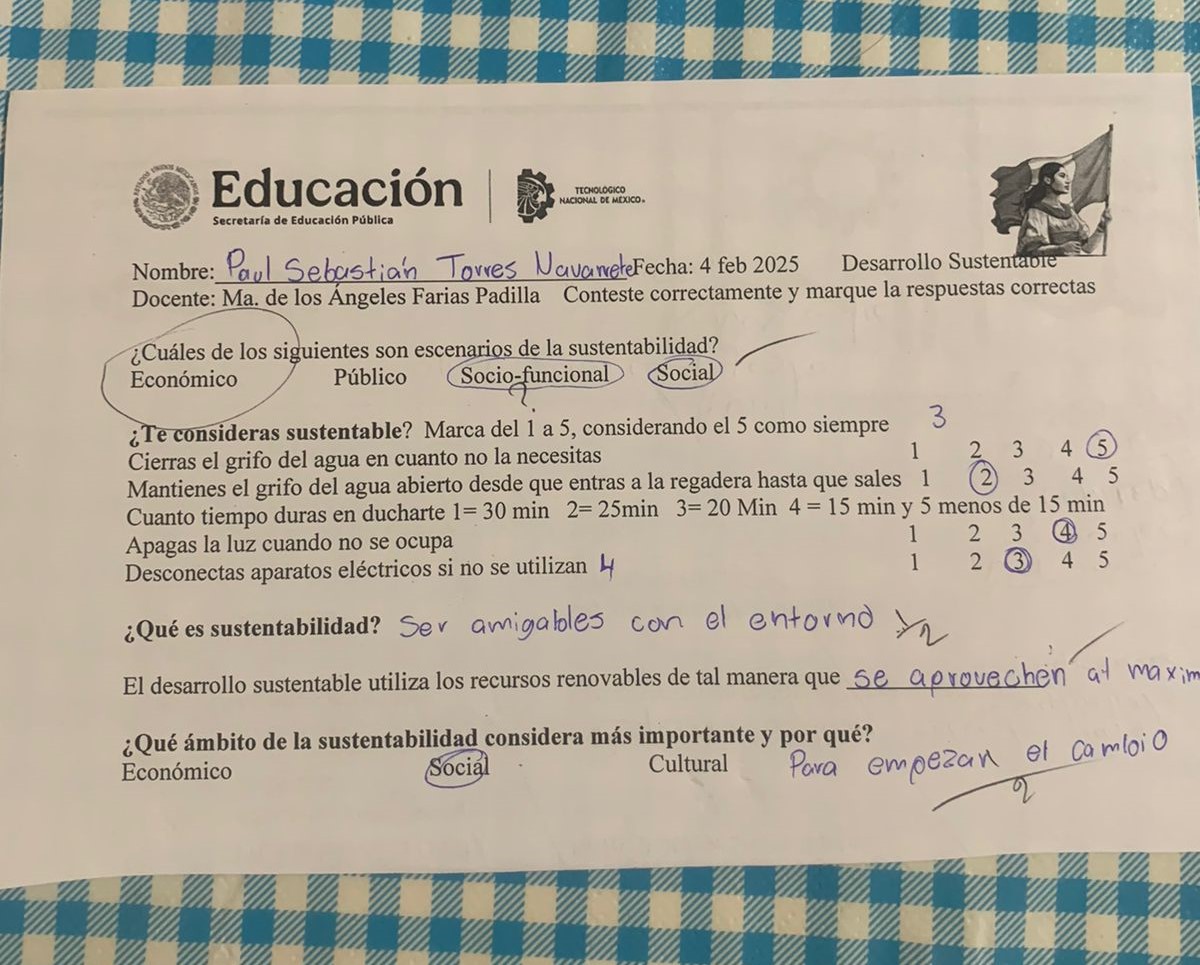 Educación
Secretaría de Educación Pública
TECNOLÓGICO
NACIONAL DE MÉXICO®
Nombre: Paul Sebastián Torres Navarrete Fecha: 4 feb 2025 Desarrollo Sustentable
Docente: Ma. de los Ángeles Farias Padilla Conteste correctamente y marque la respuestas correctas
¿Cuáles de los siguientes son escenarios de la sustentabilidad?
Económico Público Socio-funcional Social
¿Te consideras sustentable? Marca del 1 a 5, considerando el 5 como siempre 3
Cierras el grifo del agua en cuanto no la necesitas 1 2 3 4 5
Mantienes el grifo del agua abierto desde que entras a la regadera hasta que sales 1 2 3 4 5
Cuanto tiempo duras en ducharte 1= 30 min 2= 25min 3= 20 Min 4 = 15 min y 5 menos de 15 min
Apagas la luz cuando no se ocupa 1 2 3 4 5
Desconectas aparatos eléctricos si no se utilizan 4 1 2 3 4 5
¿Qué es sustentabilidad? Ser amigables con el entorno
El desarrollo sustentable utiliza los recursos renovables de tal manera que se aprovechen al maxim
¿Qué ámbito de la sustentabilidad considera más importante y por qué?
Económico Social Cultural Para empezar el cambio